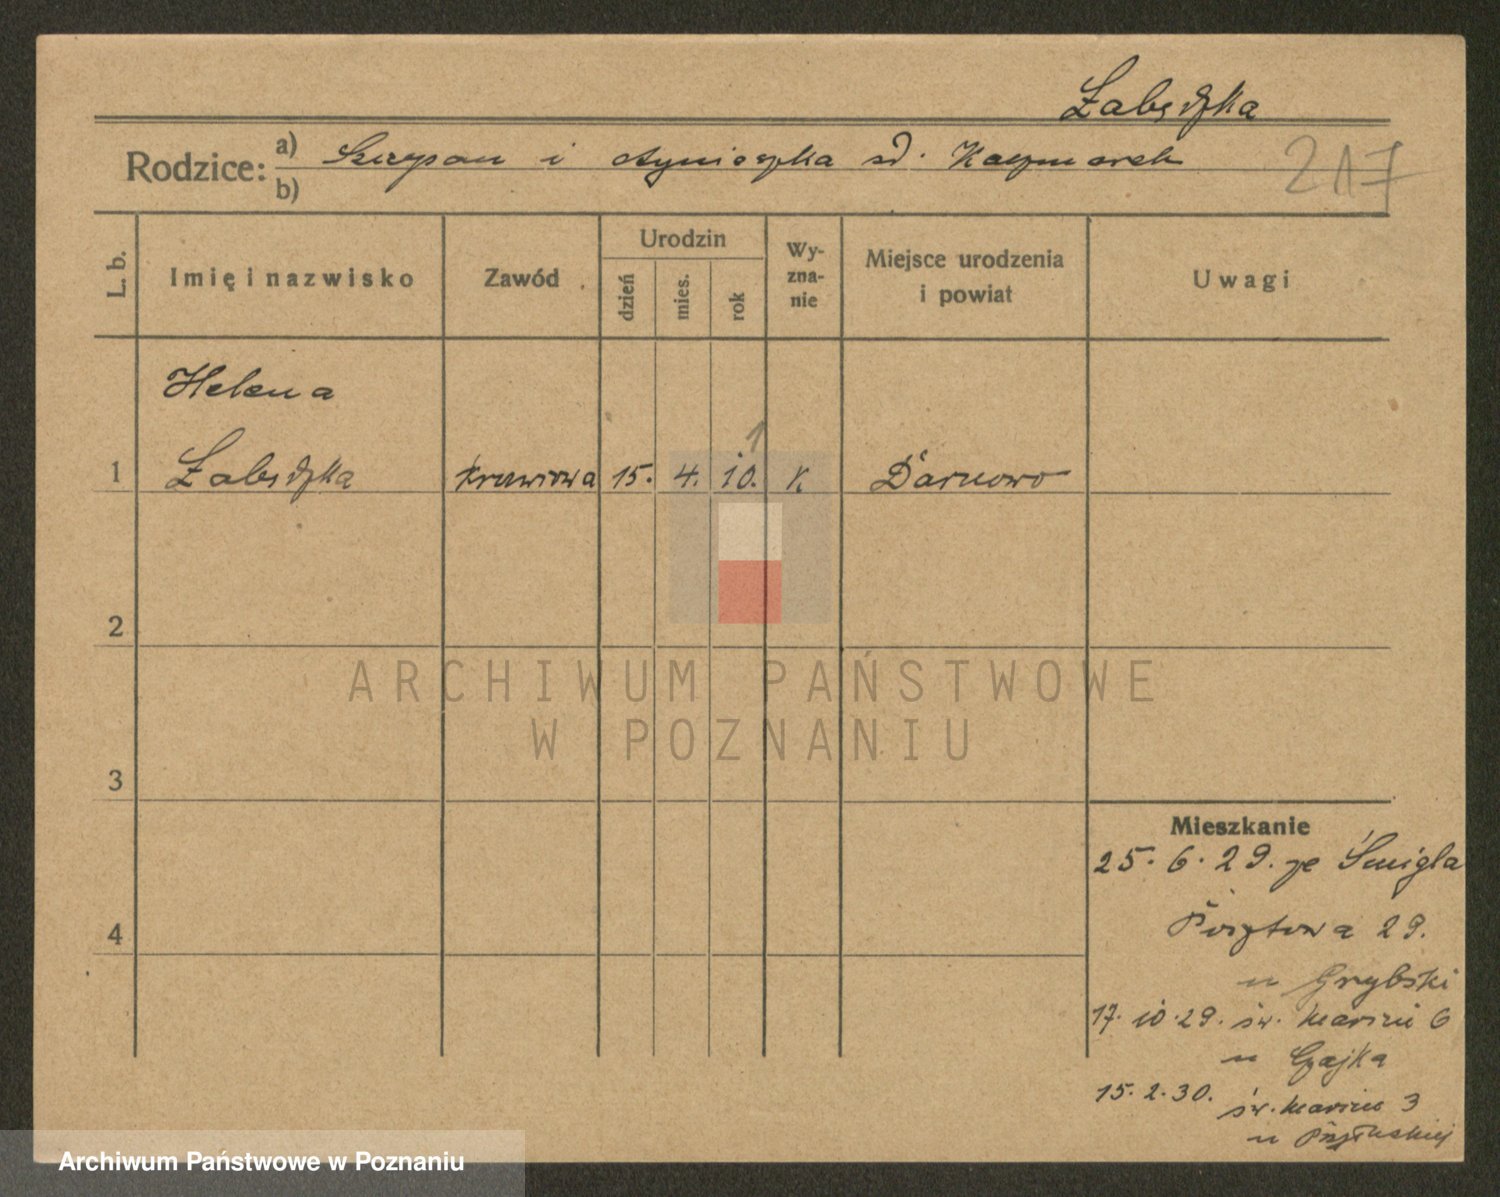 Łabędzka
Rodzice: a) Szczepan i Agnieszka zd. Kaczmarek
b)
217
L. b.
Imię i nazwisko
Zawód
Urodzin
dzień
mies.
rok
Wy-
zna-
nie
Miejsce urodzenia
i powiat
Uwagi
Helena
1 Łabędzka krawcowa 15. 4. 10. K Darnowo
2
3
4
ARCHIWUM PAŃSTWOWE
W POZNANIU
Mieszkanie
25.6.29. ze Śmigla
Pocztowa 29.
u Grybski
17.10.29. św. Marcin 6
u Czajka
15.2.30. św. Marcin 3
u
Archiwum Państwowe w Poznaniu